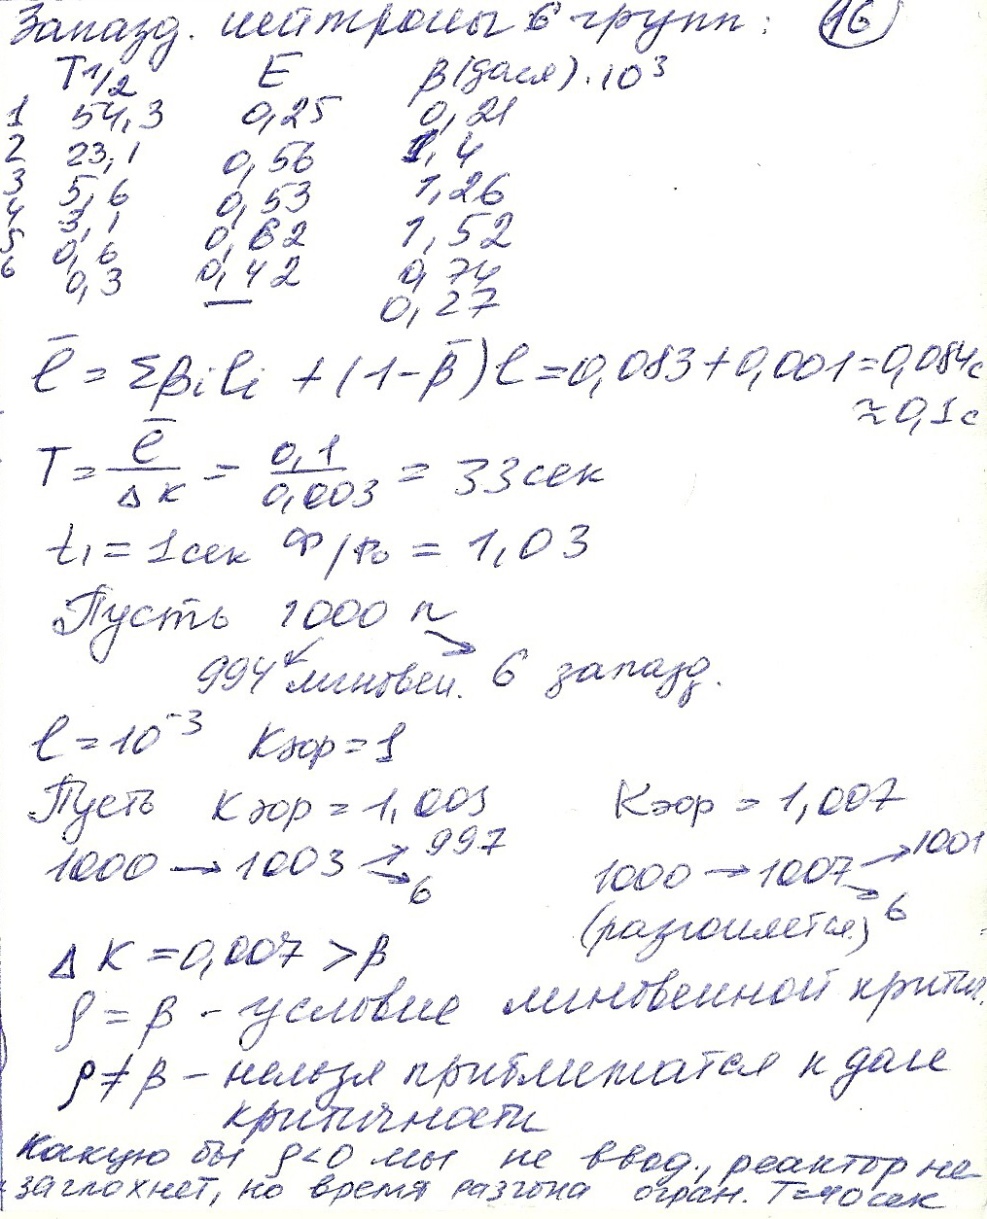 Запазд. нейтроны 6 групп: 16
T 1/2 E β(доля)·10³
1 54,3 0,25 0,21
2 23,1 0,56 1,4
3 5,6 0,53 1,26
4 3,1 0,62 1,52
5 0,6 0,42 0,74
6 0,3 — 0,27
l̄ = Σβili + (1-β̄)l = 0,083+0,001=0,084с
≈0,1с
T = l̄/ΔK = 0,1/0,003 = 33сек
t₁ = 1сек Ф/Ф₀ = 1,03
Пусть 1000 n
994 мгновен. 6 запазд.
l = 10⁻³ Kэф = 1
Пусть Kэф = 1,003 Kэф = 1,007
1000 → 1003 → 997 1000 → 1007 → 1001
6 (разгоняется) 6
ΔK = 0,007 > β
ρ = β – условие мгновенной критич.
ρ ≠ β – нельзя приближатся к даже
критичности
Какую бы ρ<0 мы не ввод., реактор не
заглохнет, но время разгона огран. T=40сек